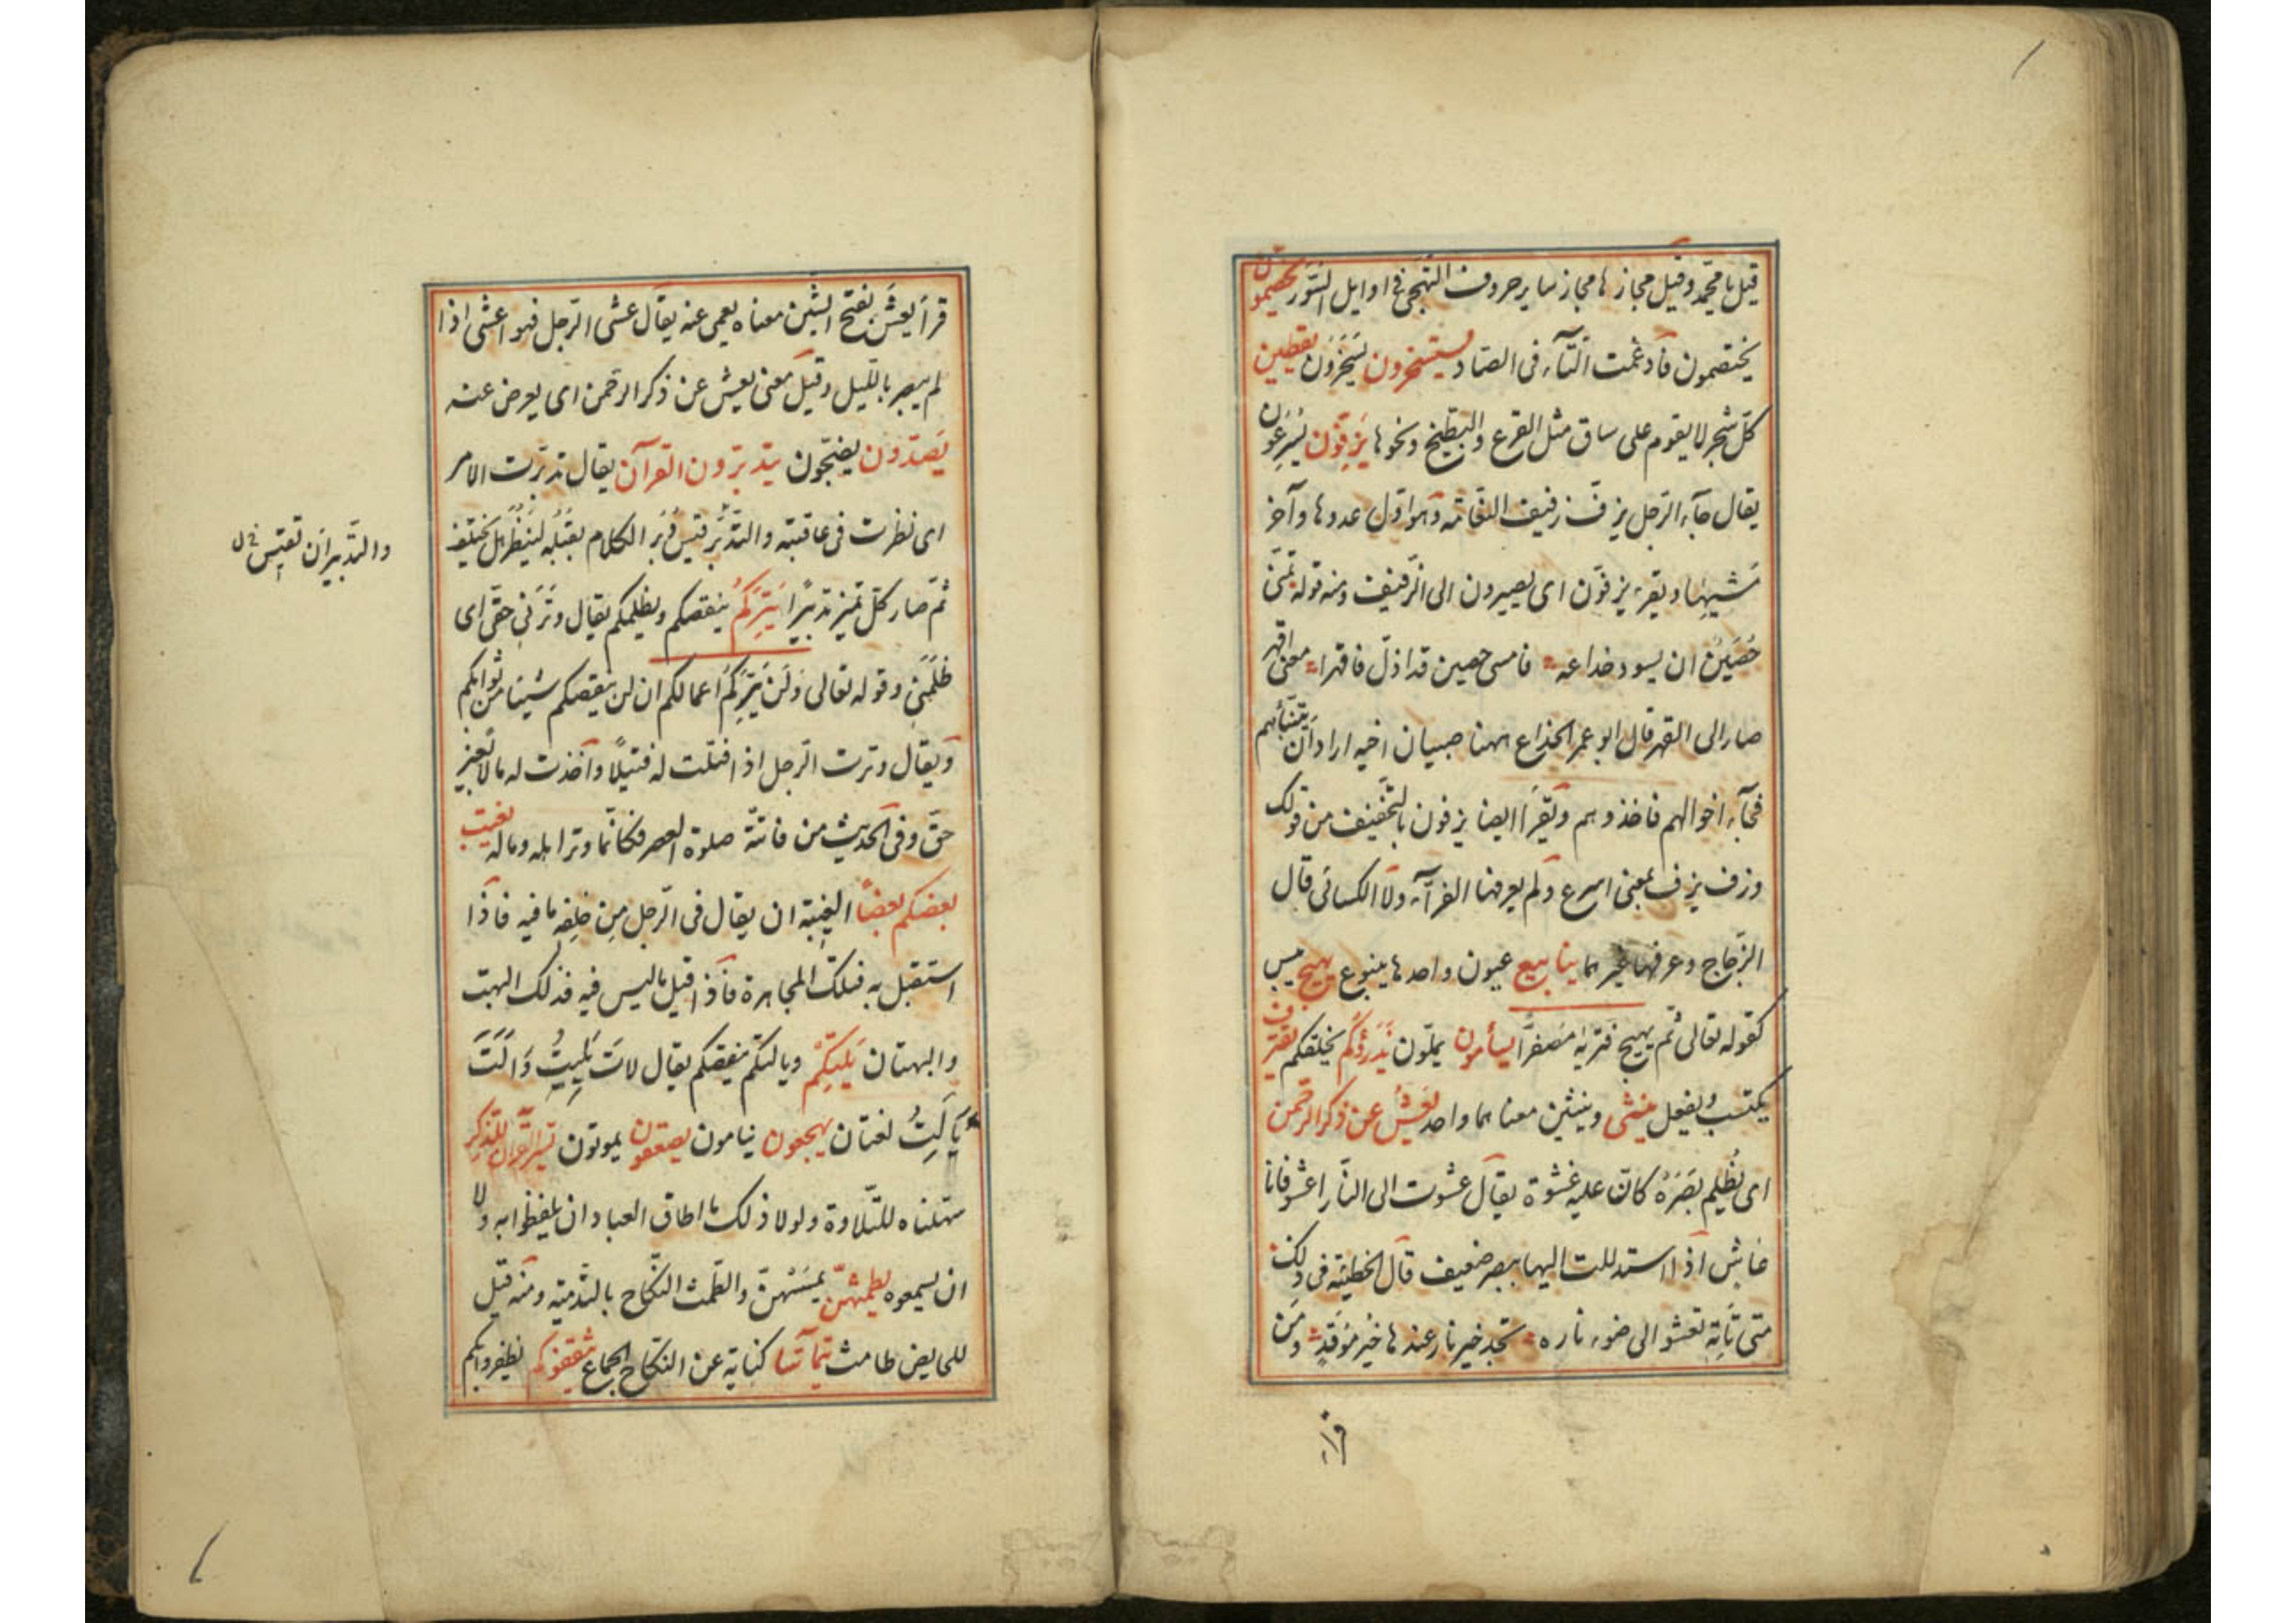 قيل يا محمّد وقيل مجازها مجاز ساير حروف التهجّى فى اوايل السّور يخصّمون
يختصمون فادغمت التّآء فى الصّاد يستسخرون يسخرون يقطين
كلّ شجر لا يقوم على ساق مثل القرع والبطّيخ ونحوها يزفّون يسرعون
يقال جآء الرّجل يزفّ زفيف النّعامة وهو اوّل عدوها وآخر
مشيها ويقرء يزفّون اى يصيرون الى الزّفيف ومنه قوله تمنّى
حُصَينٌ ان يسود خداعه فامسى حصين قد اذلّ فاقهرا معنى اقهر
صار الى القهر قال ابو عمر الخداع ههنا صبيان اخيه اراد ان
فجآء اخوالهم فاخذوهم ويقرا ايضا يزفون بالتخفيف من قولك
وزف يزف بمعنى اسرع ولم يعرفها الفرّآء ولا الكسائى قال
الزّجاج وعرفها غيرهما ينابيع عيون واحدها ينبوع يهيج ييبس
كقوله تعالى ثم يهيج فتريه مصفرّا يسأمون يملّون يذرؤكم يخلقكم يقترف
يكتسب ويفعل وينشئ وينشئن معناهما واحد يعش عن ذكر الرّحمن
اى يُظلم بَصَرُهُ كانّ عليه غشوة يقال عشوت الى النّار اعشو فانا
عاش اذا استدللت اليها ببصر ضعيف قال الحطيئة فى ذلك
متى تأته تعشو الى ضوء ناره تجد خير نار عندها خير موقد ومن
قرا
قرأ يعشَ بفتح الشّين معناه يعمى عنه يقال عشى الرّجل فهو اعشى اذا
لم يبصر باللّيل وقيل معنى يعش عن ذكر الرّحمن اى يعرض عنه
يصدّون يضجّون يتدبّرون القرآن يقال تدبّرت الامر
اى نظرت فى عاقبته والتّدبّر قيس دُبُر الكلام بقُبُله لينظر هل يختلف
ثمّ صار كلّ تميز تدبّرًا يَتِرَكُم ينقصكم ويظلمكم يقال وَتَرَنى حقّى اى
ظَلَمَنى وقوله تعالى ولن يَتِرَكُم اعمالكم ان لن ينقصكم شيئا من ثوابكم
ويقال وترت الرّجل اذا قتلت له قتيلًا واخذت له مالا بغير
حقّ وفى الحديث من فاتته صلوة العصر فكانّما وتر اهله وماله يغتب
بعضكم بعضًا الغيبة ان يقال فى الرّجل من خلفه ما فيه فاذا
استقبل به فتلك المجاهرة فاذا قيل ما ليس فيه فذلك البهت
والبهتان يَلِتكم ويالتكم ينقصكم يقال لات يليت وَاَلَتَ
يَألِتُ لغتان يهجعون ينامون يصعقون يموتون يسّرنا القرآن للذّكر
سهّلناه للتّلاوة ولولا ذلك ما اطاق العباد ان يلفظوا به ولا
ان يسمعوه يطمثهنّ يمسسهنّ والطّمث النّكاح بالتّدمية ومنه قيل
للحايض طامث يتماسّا كناية عن النّكاح الجماع يثقفوكم يظفروا بكم
والتّدبير ان تقيس